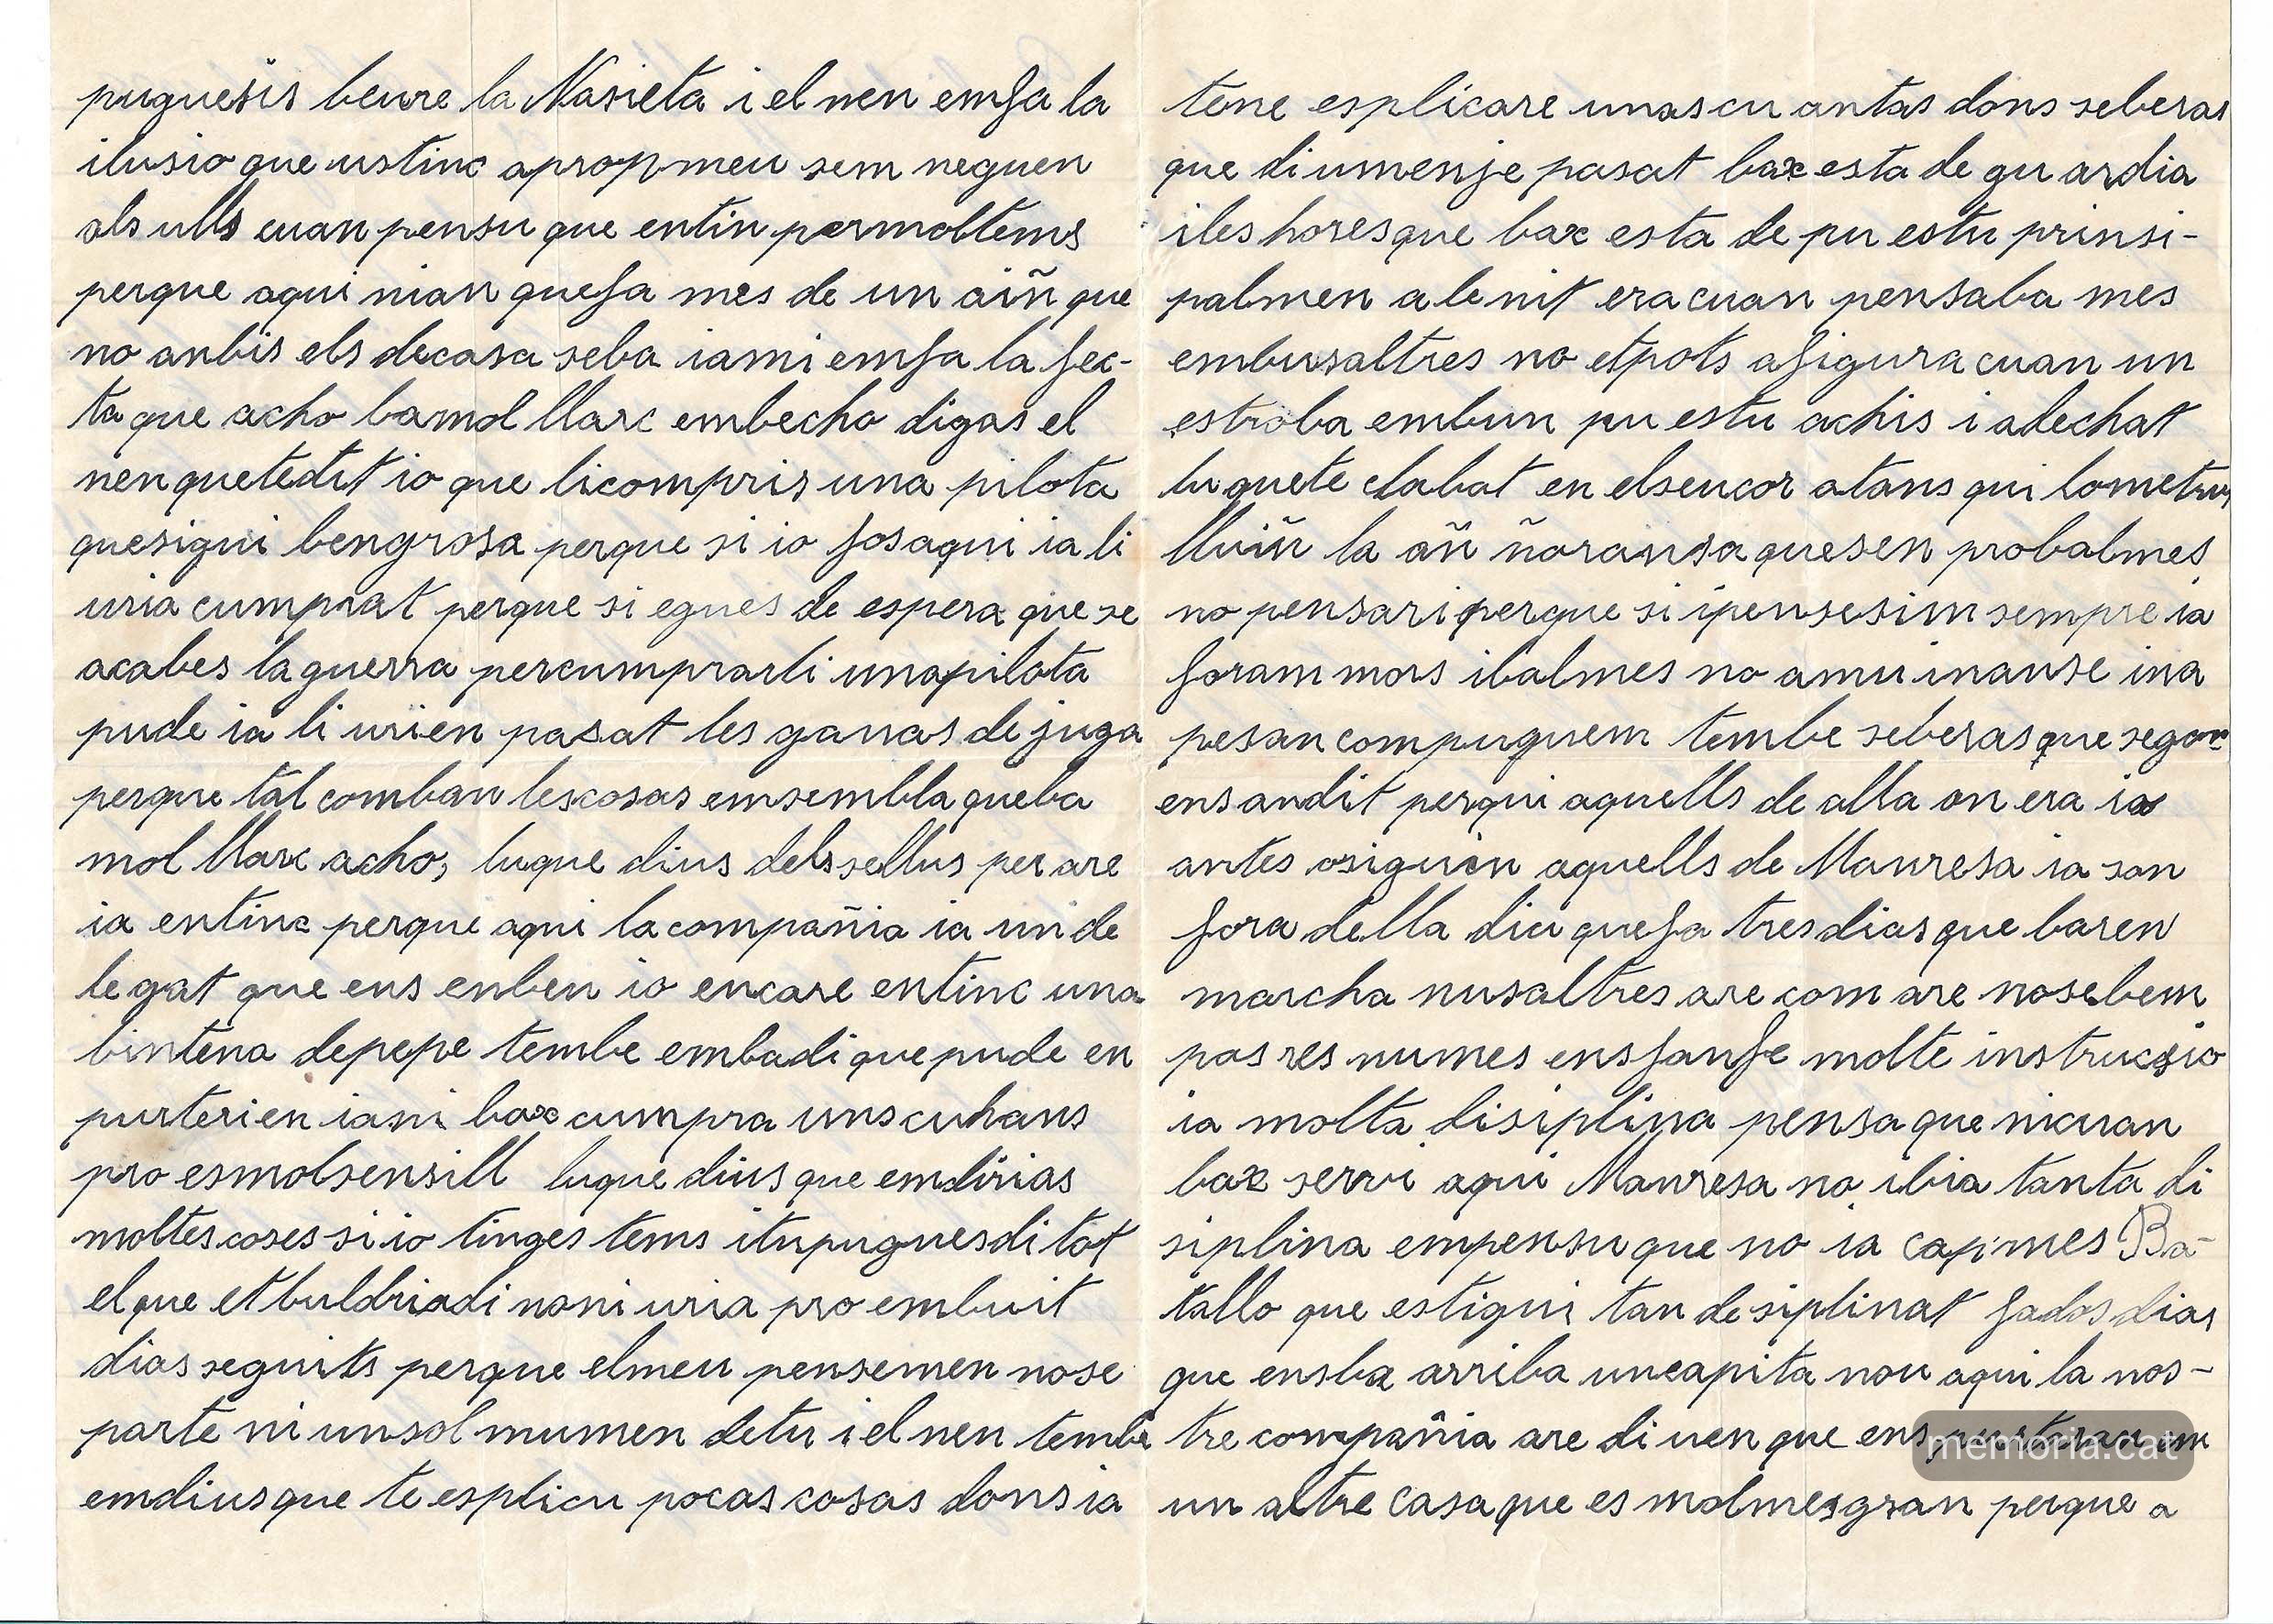 puguesis beure la Nasieta i el nen emfa la
ilusio que ustinc aprop meu sem neguen
als ulls cuan pensu que entin permoltems
perque aqui nian quefa mes de un aiñ que
no anbis els decasa seba iami emfa la fec-
ta que acho bamol llarc embecho digas el
nen quetedit io que licompris una pilota
quesigui bengrosa perque si io fosaqui ia li
uria cumprat perque si egues de espera que se
acabes la guerra percumprarli unapilota
pude ia li urien pasat les ganas de juga
perque tal comban lescosas emsembla queba
mol llarc acho, luque dius delssellus per are
ia entinc perque aqui la compañia ia un de
legat que ens enben io encare entinc una
bintena depepe tembe embadi que pude en
purterien iani bax cumpra unscuhans
pro esmolsensill luque dius que emdirias
moltes coses si io tinges tems itupuguesdi tot
el que etbuldriadi noni uria pro embuit
dias seguits perque elmeu pensemen nose
parte ni unsol mumen detu i el nen tembe
emdiusque te esplicu pocas cosas donsia
tene esplicare unascu antas dons seberas
que diumenje pasat bax esta de gu ardia
iles horesque bax esta de pu estu prinsi-
palmen a le nit era cuan pensaba mes
embusaltres no etpots afigura cuan un
estroba embun pu estu achis i adechat
luquete clabat en elseucor atans qui lometrus
lluiñ la añ ñoransa quesen probalmes
no pensari perque si ipensesim sempre ia
foram mors ibalmes no amuinanse ina
pesan compuguem tembe seberas que segons
ensandit perqui aquells de alla on era io
antes osiguin aquells de Manresa ia son
fora della diu quefa tresdias que baren
marcha nusaltres are com are nosebem
pas res numes ensfanfe molte instrucsio
ia molta disiplina pensa que nicuan
bax servi aqui Manresa no ibia tanta di
siplina empensu que no ia cap mes Ba-
tallo que estigui tan desiplinat fados dias
que ensba arriba uncapita nou aqui la nos-
tre compañia are di uen que ens purtaran em
un altre casa que es molmesgran perque a
memoria.cat